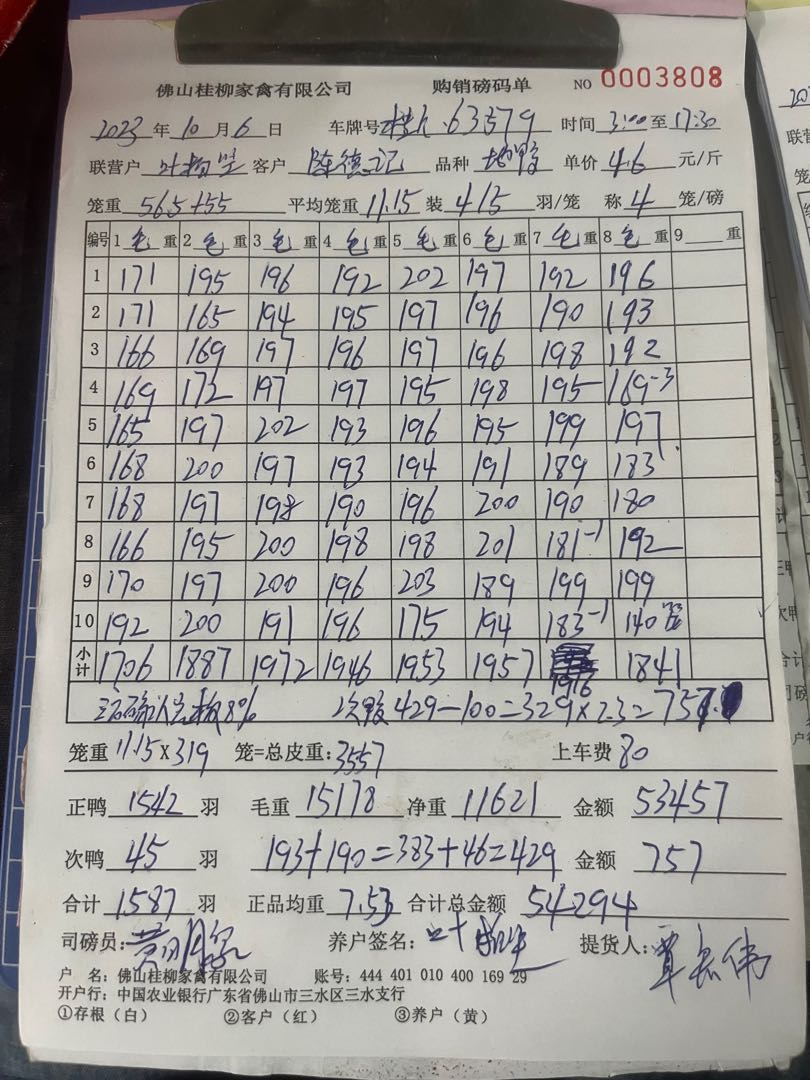 佛山桂柳家禽有限公司 购销磅码单 NO 0003808
2023 年 10 月 6 日 车牌号 63579 时间 3:00 至 17:30
联营户 客户 陈德记 品种 单价 4.6 元/斤
笼重 56.5+55 平均笼重 11.15 装 4/5 羽/笼 称 4 笼/磅
编号 1 毛 重 2 毛 重 3 毛 重 4 毛 重 5 毛 重 6 毛 重 7 毛 重 8 毛 重 9 重
1 171 195 196 192 202 197 192 196
2 171 165 194 195 197 196 190 193
3 166 169 197 196 197 196 198 192
4 169 172 197 197 195 198 195 169-3
5 165 197 202 193 196 195 199 197
6 168 200 197 193 194 191 189 183
7 168 197 198 190 196 200 190 180
8 166 195 200 198 198 201 181-1 192
9 170 197 200 196 203 189 199 199
10 192 200 191 196 175 194 183-1 140
小计 1706 1887 1972 1946 1953 1957 1916 1841
8% 次 429-100=329×2.3=757
笼重 11.15×319 笼=总皮重: 3557 上车费 80
正鸭 1542 羽 毛重 15178 净重 11621 金额 53457
次鸭 45 羽 193+190=383+46=429 金额 757
合计 1587 羽 正品均重 7.53 合计总金额 54294
司磅员: 养户签名: 提货人:
户 名: 佛山桂柳家禽有限公司 账号: 444 401 010 400 169 29
开户行: 中国农业银行广东省佛山市三水区三水支行
①存根（白） ②客户（红） ③养户（黄）